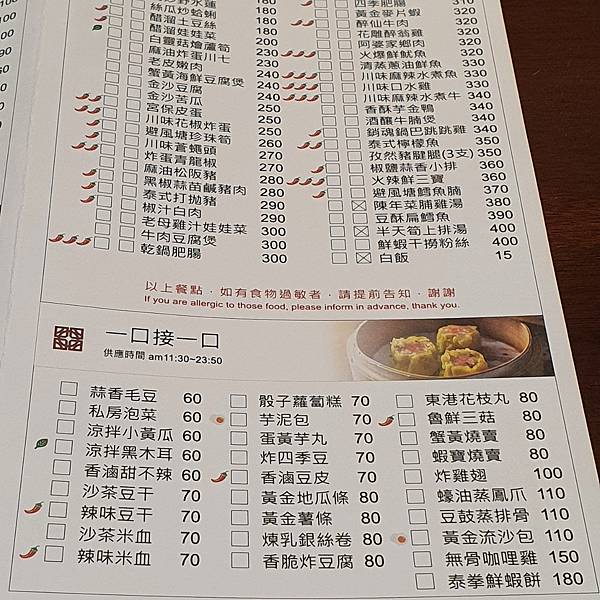 絲瓜炒蛤蜊 180
醋溜土豆絲 180
醋溜娃娃菜 180
白靈菇燴蘆筍 200
麻油炸蛋川七 230
老皮嫩肉 230
蟹黃海鮮豆腐煲 240
金沙豆腐 240
金沙苦瓜 240
宮保皮蛋 240
川味花椒炸蛋 250
避風塘珍珠筍 260
川味蒼蠅頭 260
炸蛋青龍椒 270
麻油松阪豬 270
黑椒蒜苗鹹豬肉 280
泰式打拋豬 280
椒汁白肉 290
老母雞汁娃娃菜 290
牛肉豆腐煲 300
乾鍋肥腸 300
300
四季肥腸 310
黃金麥片蝦 320
醉仙牛肉 320
花雕醉翁雞 320
阿婆家鄉肉 320
火爆鮮魷魚 320
清蒸蔥油鮮魚 330
川味麻辣水煮魚 330
川味口水雞 330
川味麻辣水煮牛 340
香酥芋金鴨 340
酒釀牛腩煲 340
銷魂鍋巴跳跳雞 340
泰式檸檬魚 350
孜然豬腱腿(3支) 350
椒鹽蒜香小排 360
火辣鮮三寶 360
避風塘鱈魚腩 370
陳年菜脯雞湯 380
豆酥扁鱈魚 390
半天筍上排湯 400
鮮蝦干撈粉絲 400
白飯 15
以上餐點，如有食物過敏者，請提前告知，謝謝
If you are allergic to those food, please inform in advance, thank you.
一口接一口
供應時間 am11:30~23:50
蒜香毛豆 60
私房泡菜 60
涼拌小黃瓜 60
涼拌黑木耳 60
香滷甜不辣 60
沙茶豆干 70
辣味豆干 70
沙茶米血 70
辣味米血 70
骰子蘿蔔糕 70
芋泥包 70
蛋黃芋丸 70
炸四季豆 70
香滷豆皮 70
黃金地瓜條 80
黃金薯條 80
煉乳銀絲卷 80
香脆炸豆腐 80
東港花枝丸 80
魯鮮三菇 80
蟹黃燒賣 80
蝦寶燒賣 80
炸雞翅 100
蠔油蒸鳳爪 110
豆鼓蒸排骨 110
黃金流沙包 110
無骨咖哩雞 150
泰拳鮮蝦餅 180